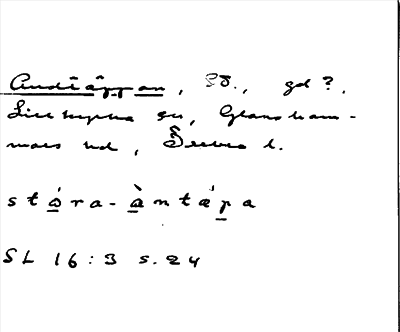 Andeäppan, SO., gd?,
Lillkyrka sn, Glanshammars hd, Örebro l.
stóra-àntǽpa
SL 16:3 s.24